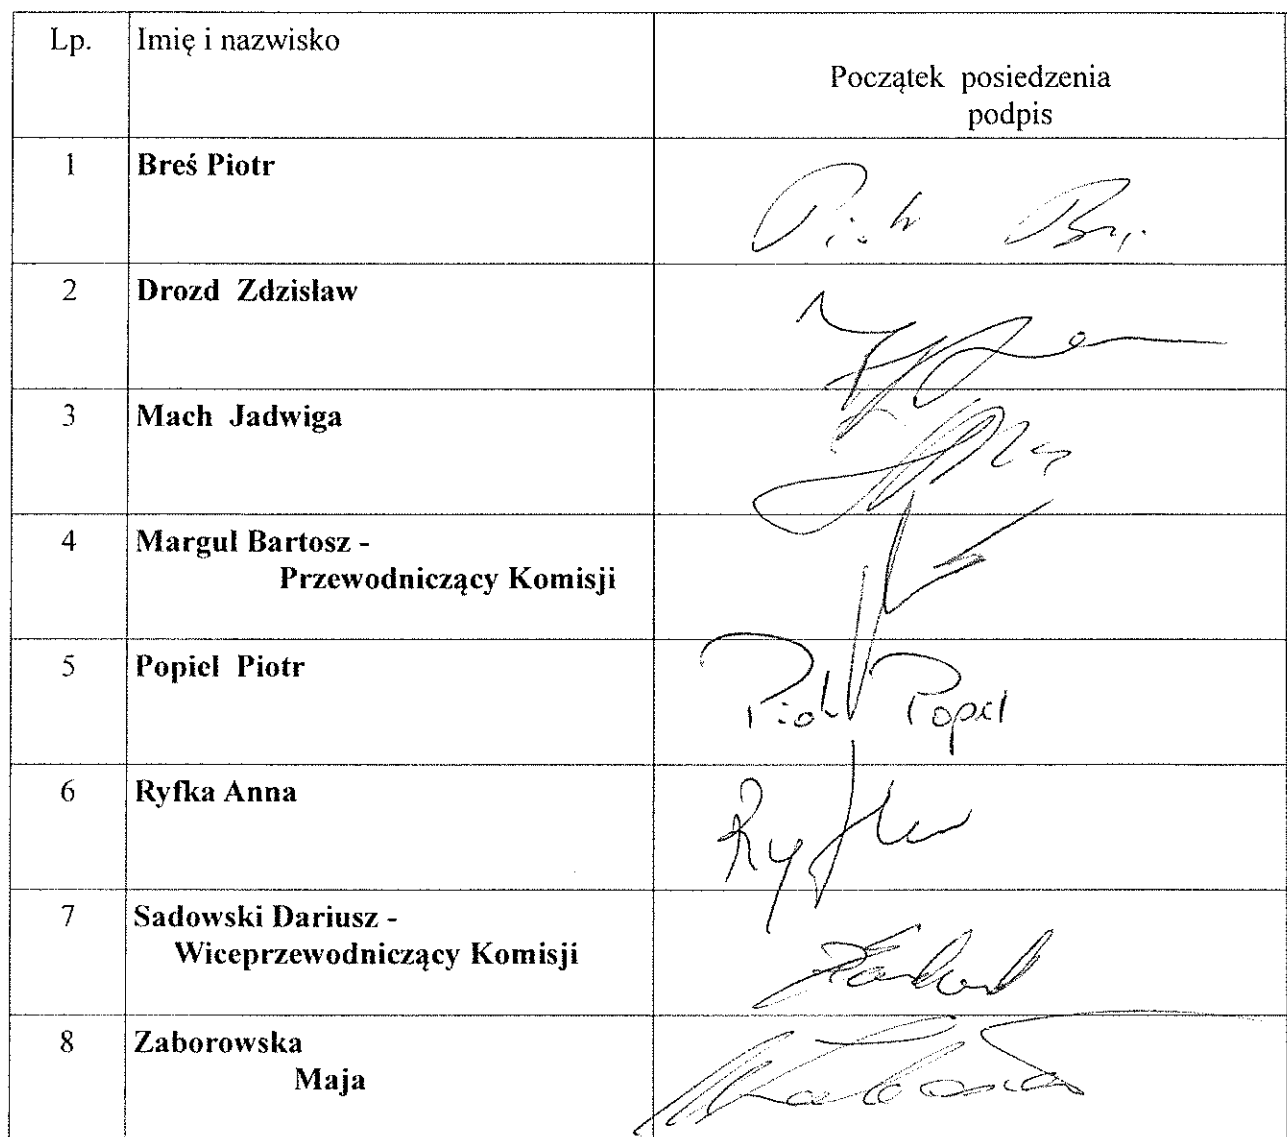 Lp. Imię i nazwisko
Początek posiedzenia
podpis
1 Breś Piotr
Piotr
2 Drozd Zdzisław
3 Mach Jadwiga
4 Margul Bartosz -
Przewodniczący Komisji
5 Popiel Piotr
Piotr Popiel
6 Ryfka Anna
Ryfka
7 Sadowski Dariusz -
Wiceprzewodniczący Komisji
8 Zaborowska
Maja